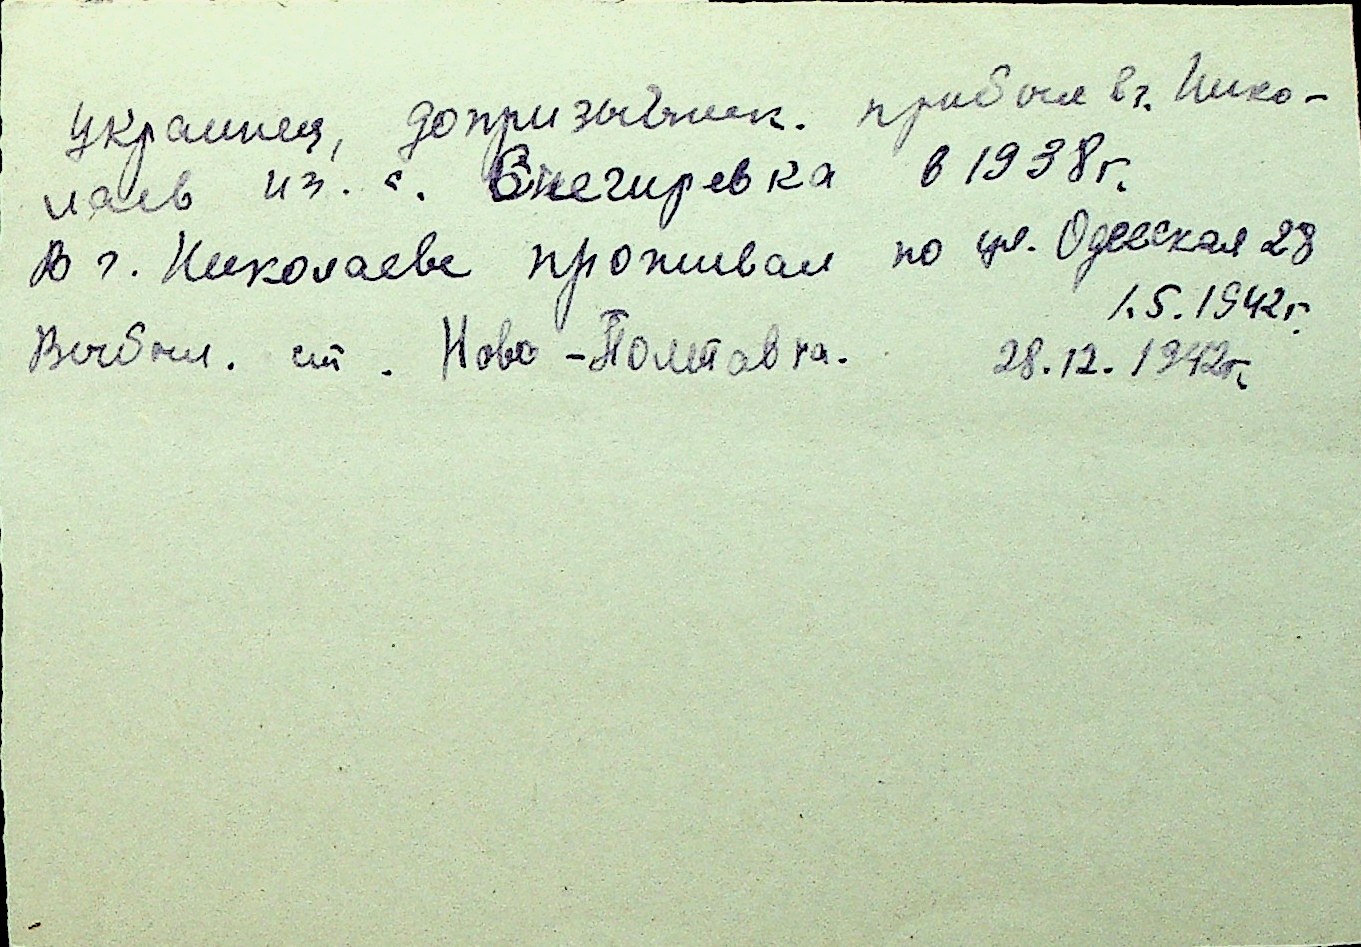 украинец, допризывник. прибыл в г. Нико-
лаев из. с. Снегиревка в 1938г.
В г. Николаеве проживал по ул. Одесская 28
1.5.1942г.
Выбыл. ст. Ново-Полтавка. 28.12.1942г.